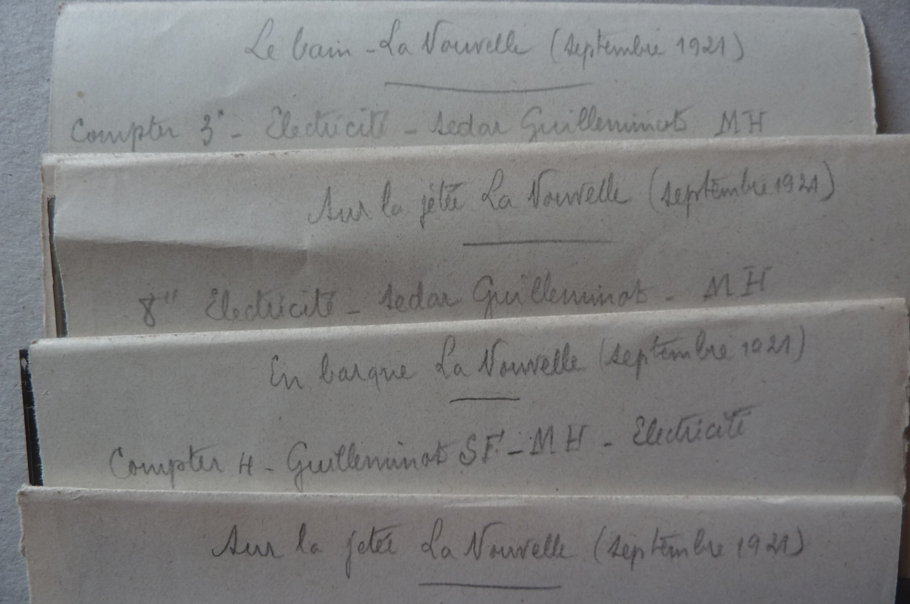 Le bain - La Nouvelle (septembre 1921)
Compter 3" - Electricité - sedar Guilleminot MH
Sur la jetée La Nouvelle (septembre 1921)
8" Electricité - sedar Guilleminot - MH
En barque La Nouvelle (septembre 1921)
Compter 4 - Guilleminot SF - MH - Electricité
Sur la jetée La Nouvelle (septembre 1921)